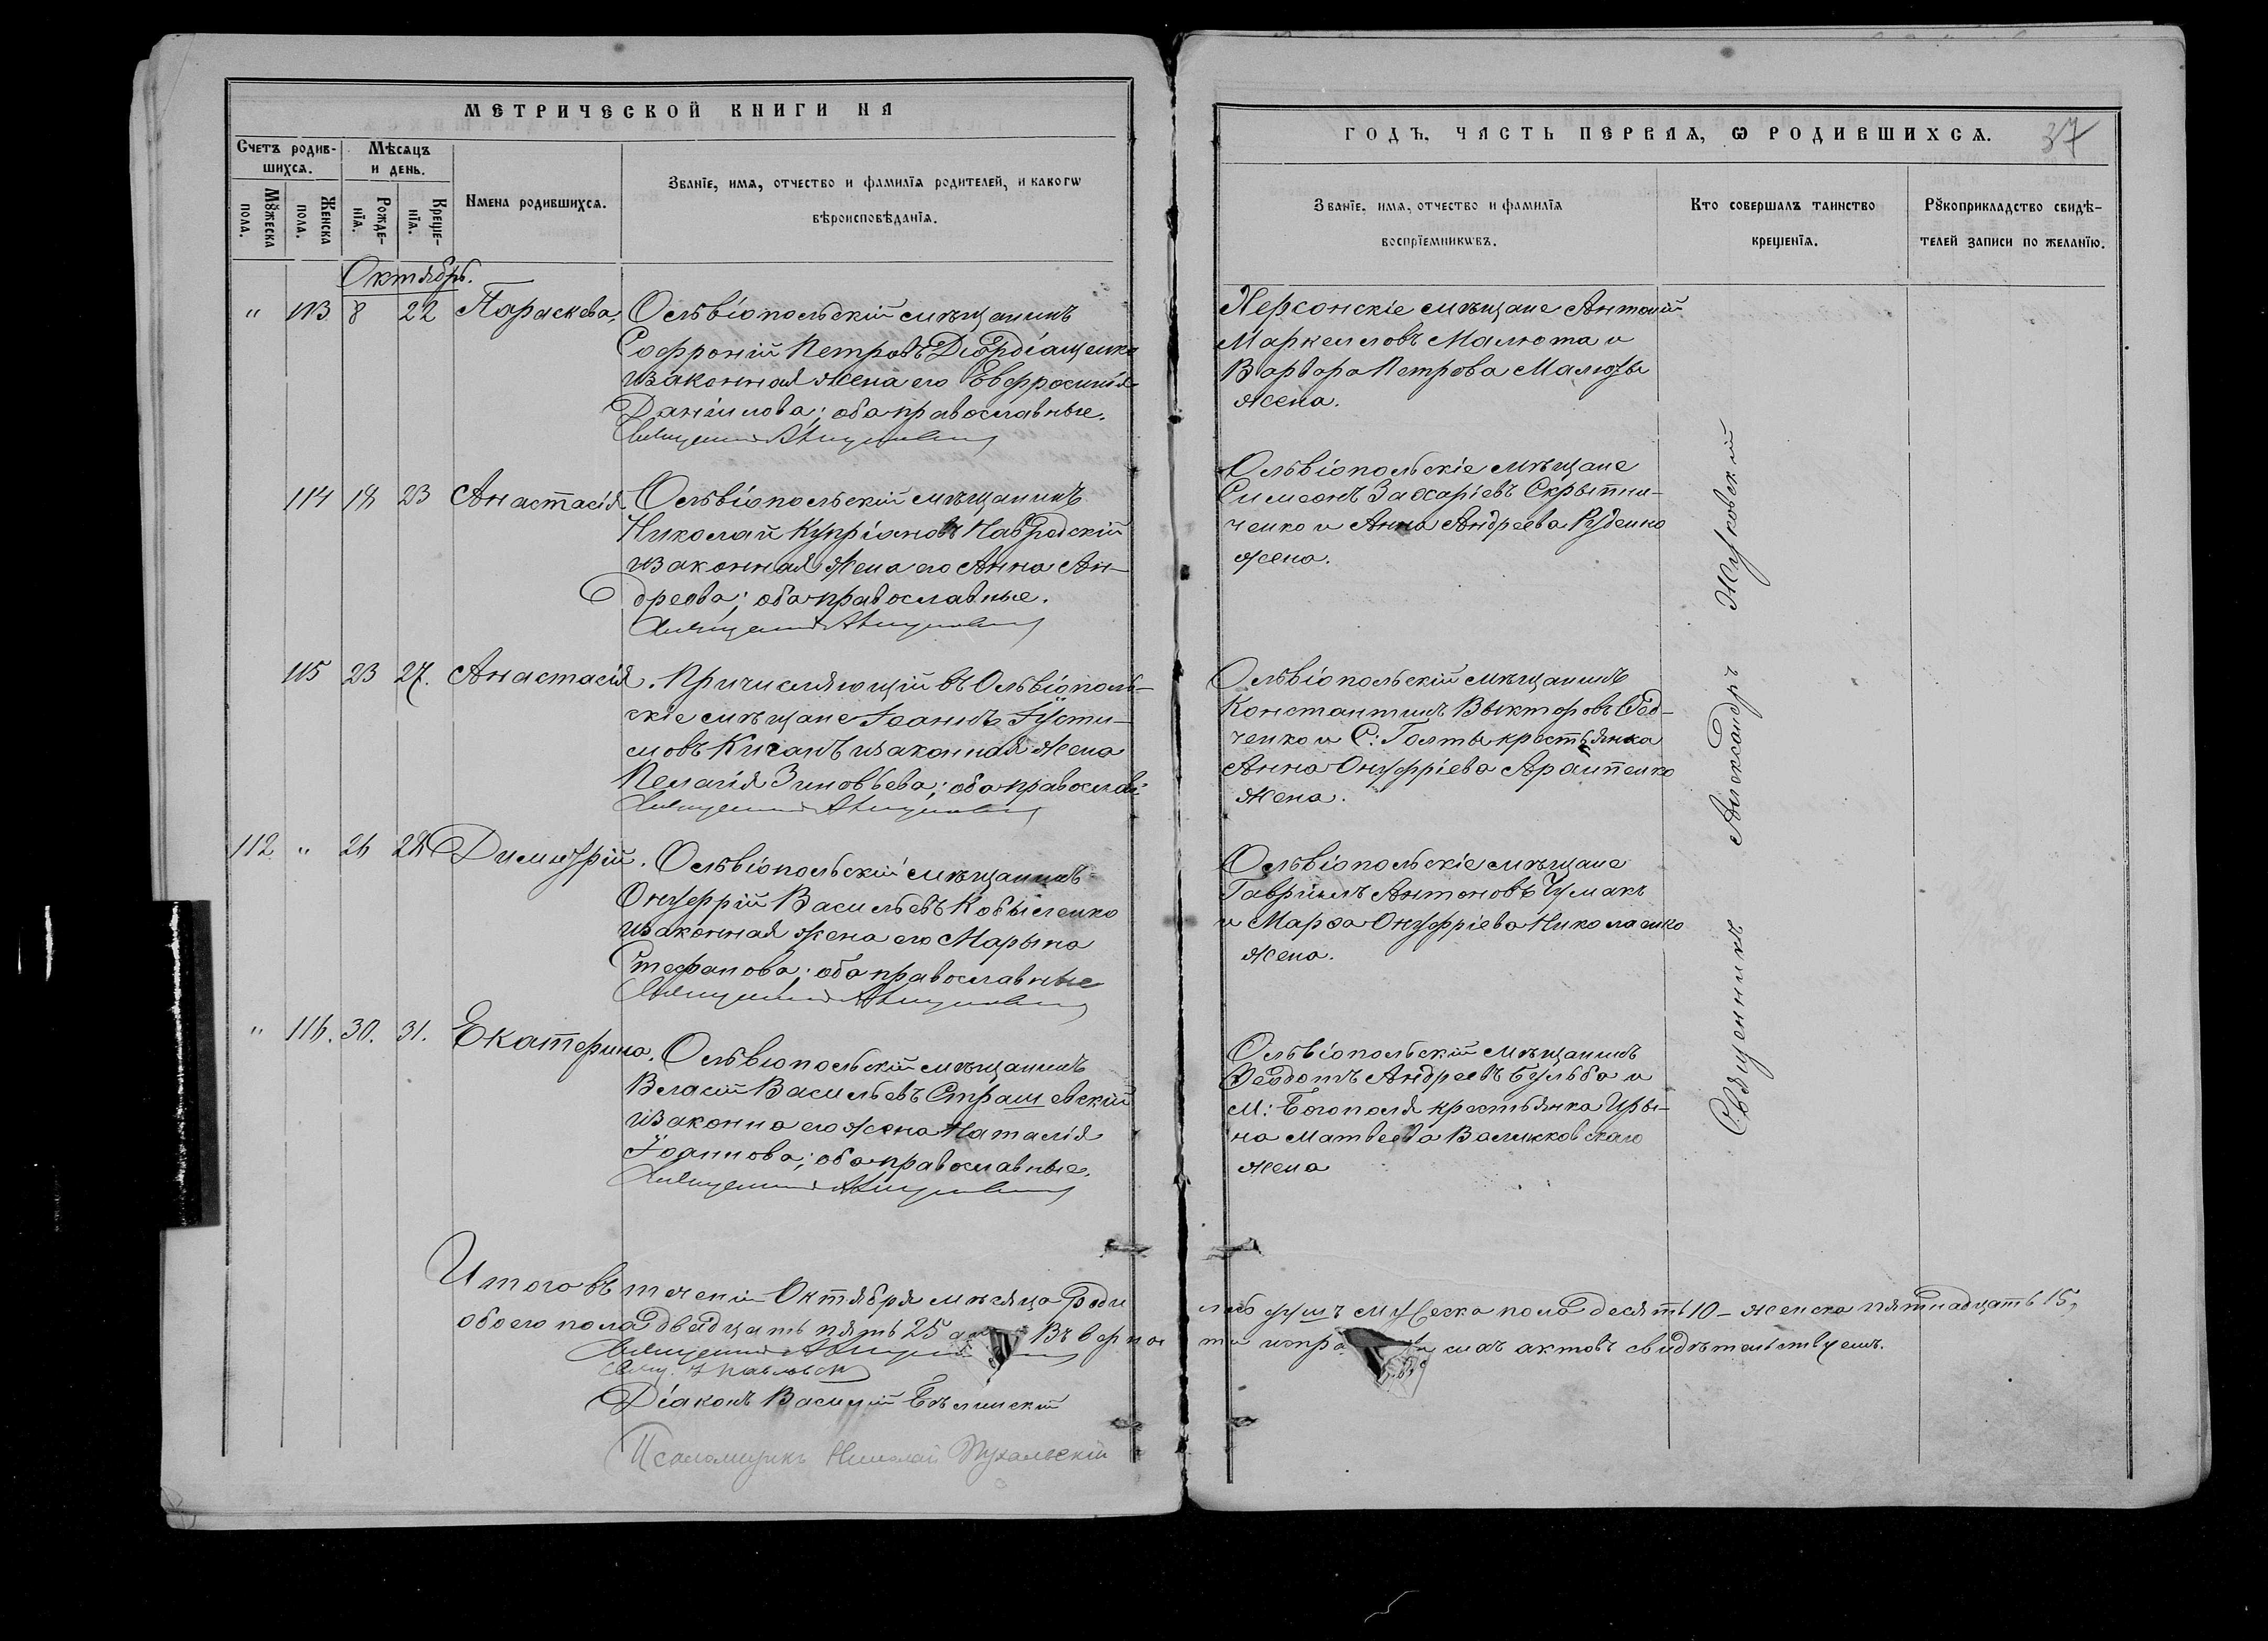 МЕТРИЧЕСКОЙ КНИГИ НА
Счетъ родив-
шихсѧ.
Мѣсѧцъ
и день.
Мꙋжеска
пола.
Женска
пола.
Рожде-
нїѧ.
Креще-
нїѧ.
Имена родившихсѧ.
Званїе, имѧ, отчество и фамилїѧ родителей, и какогѡ
вѣроисповѣданїѧ.
Октябрь.
" 113 8 22 Параскева.
Ольвіопольскій мѣщанинъ
Софроній Петровъ
и законная жена его Евфросинія
Даніилова; оба православные.
114 18 23 Анастасія
Ольвіопольскій мѣщанинъ
Николай Купріяновъ Навродскій
и законная жена его Анна Ан-
дреева; оба православные.
115 23 27. Анастасія.
Причисляющій въ Ольвіополь-
скіе мѣщане Іоаннъ Іусти-
новъ Кичанъ и законная жена
Пелагія Зиновьева; оба православ:
112 " 26 28 Димитрій.
Ольвіопольскій мѣщанинъ
Онуфрій Васильевъ Кобыленко
и законная жена его Марына
Стефанова; оба православные
" 116. 30. 31. Екатерина.
Ольвіопольскій мѣщанинъ
Власій Васильевъ Страшевскій
и законна его жена Наталія
Іоаннова; оба православные.
Итого въ теченіи Октября мѣсяца роди
обоего пола двадцать пять 25 Въ вѣрнос
Діаконъ Василій Бѣлинскій
Псаломщикъ Николай
ГОДЪ, ЧАСТЬ ПЕРВАѦ, Ѡ РОДИВШИХСѦ.
37
Званїе, имѧ, отчество и фамилїѧ
воспрїемникѡвъ.
Кто совершалъ таинство
крещенїѧ.
Рꙋкоприкладство свидѣ-
телей записи по желанїю.
Херсонскіе мѣщане Антоній
Маркелловъ Малюта и
Варвара Петрова Малюты
жена.
Ольвіопольскіе мѣщане
Симеонъ Захаріевъ Скрыпни-
ченко и Анна Андреева Руденко
жена.
Ольвіопольскій мѣщанинъ
Константинъ Выкторовъ Өед-
ченко и С: Голты крестьянка
Анна Онуфріева
жена.
Ольвіопольскіе мѣщане
Гавріилъ Антоновъ Чумакъ
и Марѳа Онуфріева Николаенко
жена.
Ольвіопольскій мѣщанинъ
Ѳеодотъ Андреевъ Бульба и
М: Богополя крестьянка Иры-
на Матвеева
жена
Священникъ Александръ Жуковскій
лось душъ мужеска пола десять 10 – женска пятнадцать 15,
ти сихъ актовъ свидѣтельствуемъ.